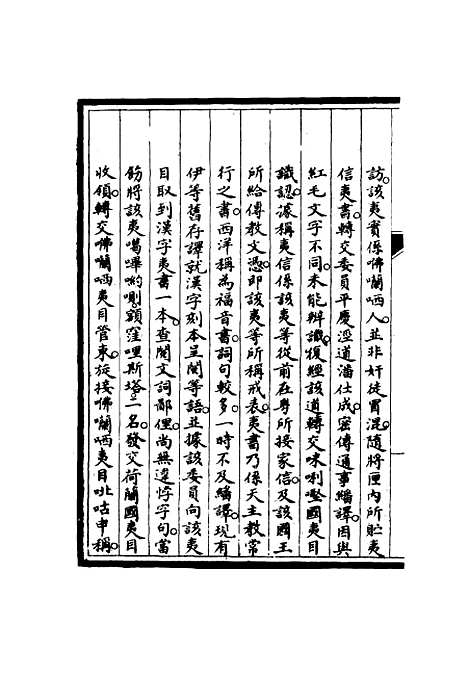 訪該夷實係咈囒哂人並非奸徒冒混隨將匣內所貯夷
信夷書轉交委員平慶涇道潘仕成密傳通事編譯因與
紅毛文字不同未能辦識復經該道轉交咪唎堅國夷目
識認據稱夷信係該夷等從前在粵所接家信及該國王
所給傳教文憑即該夷等所稱戒表夷書乃係天主教常
行之書西洋稱為福音書詞句較多一時不及編譯現有
伊等舊存譯就漢字刻本呈閱等語並據該委員向該夷
目取到漢字夷書一本查閱文詞鄙俚尚無違悖字句當
飭將該夷噶嗶約唎額窪哩斯塔二名發交荷蘭國夷目
收領轉交咈囒哂夷目管束旋接咈囒哂夷目吡咕申稱